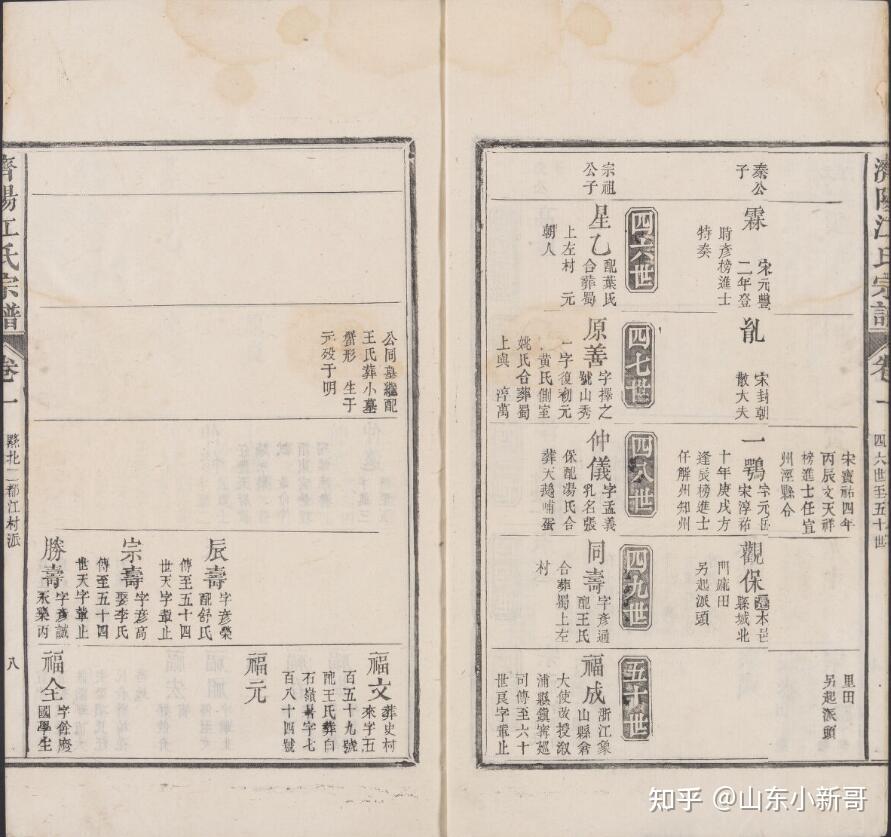 濟陽江氏宗譜
卷一
四六世至五十世
秦公
子
宗祖
公子
霖
宋元豐
二年登
時彥榜進士
特奏
四六世
星乙
配葉氏
合葬蜀
上左村 元
朝人
宋封朝
散大夫
四七世
原善
字擇之
號山秀
一字復初元
黃氏側室
姚氏合葬蜀
上與 淳萬
宋寶祐四年
丙辰文天祥
榜進士任宜
州涇縣令
一鶚
字元岳
宋淳祐
十年庚戌方
逢辰榜進士
仟解州知州
四八世
仲儀
字孟義
乳名張
保配湯氏合
葬天越哺蛋
觀保
木邑
縣城北
門疏田
另起派頭
四九世
同壽
字彥通
配王氏
合葬蜀上左
村
里田
另起派頭
五十世
福成
浙江象
山縣倉
大使改授溆
浦縣鎮寧廵
司傳至六十
世良字輩止
公同墓繼配
王氏葬小墓
蠶形 生于
元歿于明
辰壽
字彥榮
配舒氏
傳至五十四
世天字輩止
宗壽
字彥高
娶李氏
傳至五十四
世天字輩止
勝壽
字彥誠
永樂丙
福文
葬史村
來字五
百五十九號
配王氏葬白
石嶺暑字七
百八十四號
福元
福全
字餘慶
國學生
濟陽江氏宗譜
卷一
縣北二都江村派
八
知乎 @山东小新哥